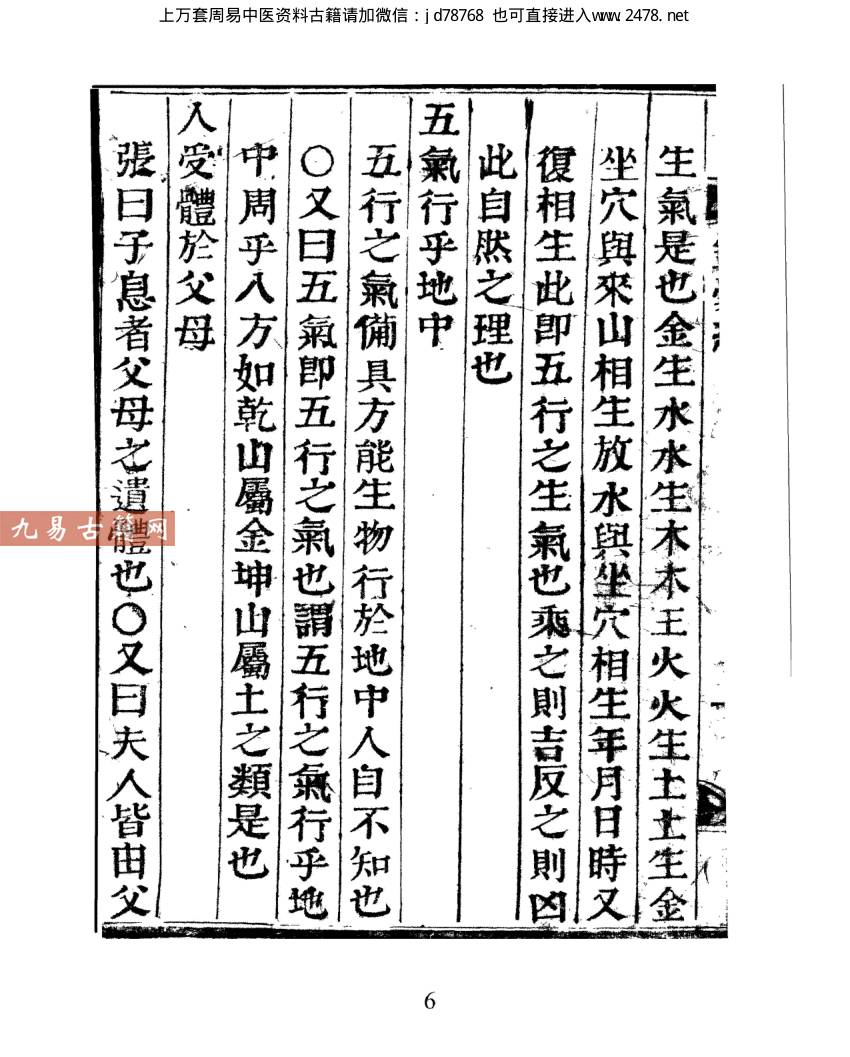 上万套周易中医资料古籍请加微信：jd78768 也可直接进入www.2478.net
生氣是也金生水水生木木王火火生土土生金
坐穴與來山相生放水與坐穴相生年月日時又
復相生此卽五行之生氣也乘之則吉反之則凶
此自然之理也
五氣行乎地中
五行之氣備具方能生物行於地中人自不知也
○又曰五氣卽五行之氣也謂五行之氣行乎地
中周乎八方如乾山屬金坤山屬土之類是也
人受體於父母
張曰子息者父母之遺體也○又曰夫人皆由父
九易古籍网
6